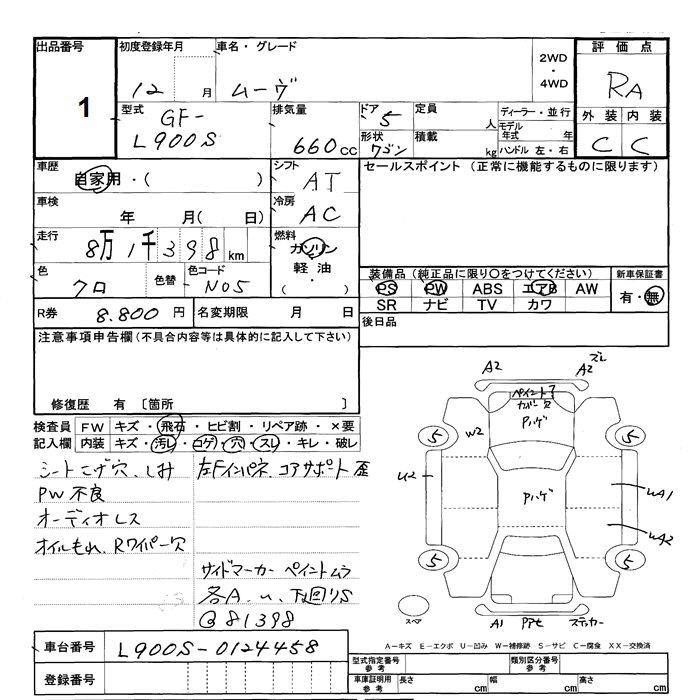 出品番号 初度登録年月 車名・グレード 2WD・4WD 評価点
1 12 月 ムーヴ RA
型式 排気量 ドア 定員 ディーラー・並行 外装 内装
GF- 5 人 モデル年式 年
L900S 660cc 形状 ワゴン 積載 kg ハンドル 左・右 C C
車歴 シフト セールスポイント (正常に機能するものに限ります)
自家用・( ) AT
車検 冷房
年 月( 日) AC
走行 燃料
8万1千398km ガソリン
軽油
・( )
色 色替 色コード 装備品(純正品に限り○をつけてください) 新車保証書
クロ N05 PS PW ABS エアB AW 有・無
SR ナビ TV カワ
R券 8.800円 名変期限 月 日 後日品
注意事項申告欄(不具合内容等は具体的に記入して下さい)
修復歴 有〔箇所 〕
検査員 FW キズ・飛石・ヒビ割・リペア跡・×要
記入欄 内装 キズ・汚レ・コゲ・穴・スレ・キレ・破レ
シートこげ穴、しみ 左Fインパネ、コアサポート歪
PW不良
オーディオレス
オイルもれ、Rワイパー欠
サイドマーカー ペイントムラ
各A、u、下回りS
@81398
A2 A2 ズレ
ペイント?
カバー欠
Pハゲ
5 W2 5
U2 Pハゲ uA1
uA2
5 5
スペア A1 ステッカー
A-キズ E-エクボ U-凹み W-補修跡 S-サビ C-腐食 XX-交換済
車台番号 L900S-0124458
登録番号
型式指定番号 参考 類別区分番号 参考
車庫証明用 参考 長さ cm 幅 cm 高さ cm